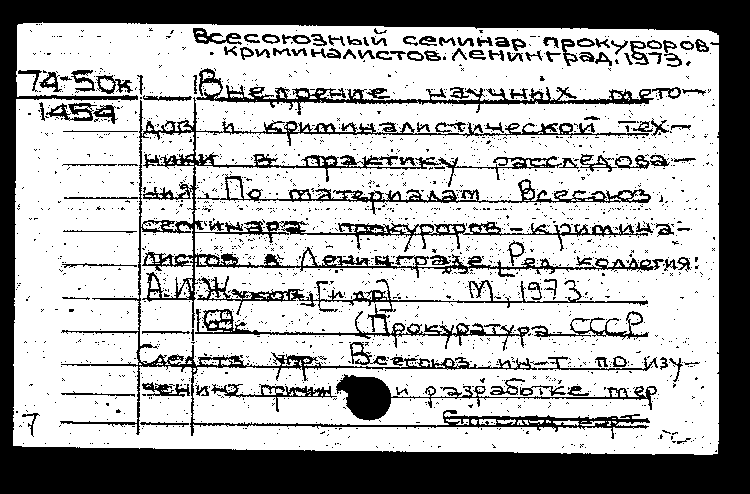 Всесоюзный семинар прокуроров-
криминалистов. Ленинград. 1973.
74-50к
1454
Внедрение научных мето-
дов и криминалистической тех-
ники в практику расследова-
ния. По материалам Всесоюз.
семинара прокуроров-кримина-
листов в Ленинграде [Ред. коллегия:
А.И. Жуков, [и др]. М., 1973.
169с. (Прокуратура СССР
Следств. упр. Всесоюз. ин-т по изу-
чению причин и разработке мер
См. след. карт.
7